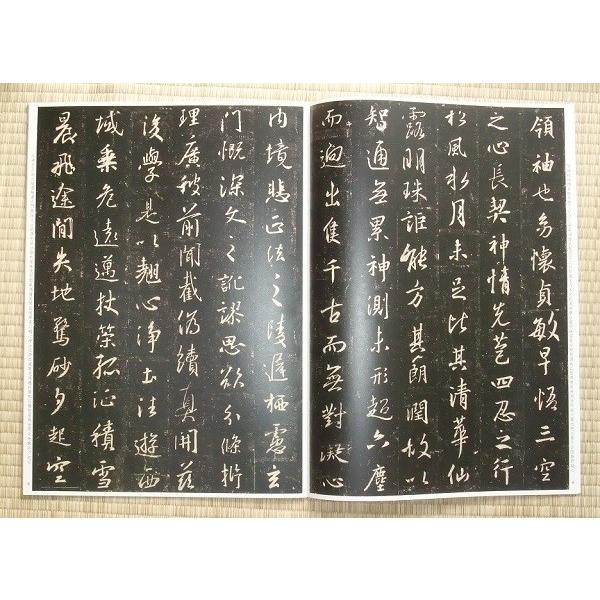 領袖也幼懷貞敏早悟三空
之心長契神情先苞四忍之行
松風水月未足比其清華仙
露明珠詎能方其朗潤故以
智通無累神測未形超六塵
而迥出隻千古而無對凝心
內境悲正法之陵遲栖慮玄
門慨深文之訛謬思欲分條析
理廣彼前聞截偽續真開茲
後學是以翹心淨土法遊西
域乘危遠邁杖策孤征積雪
晨飛途間失地驚砂夕起空